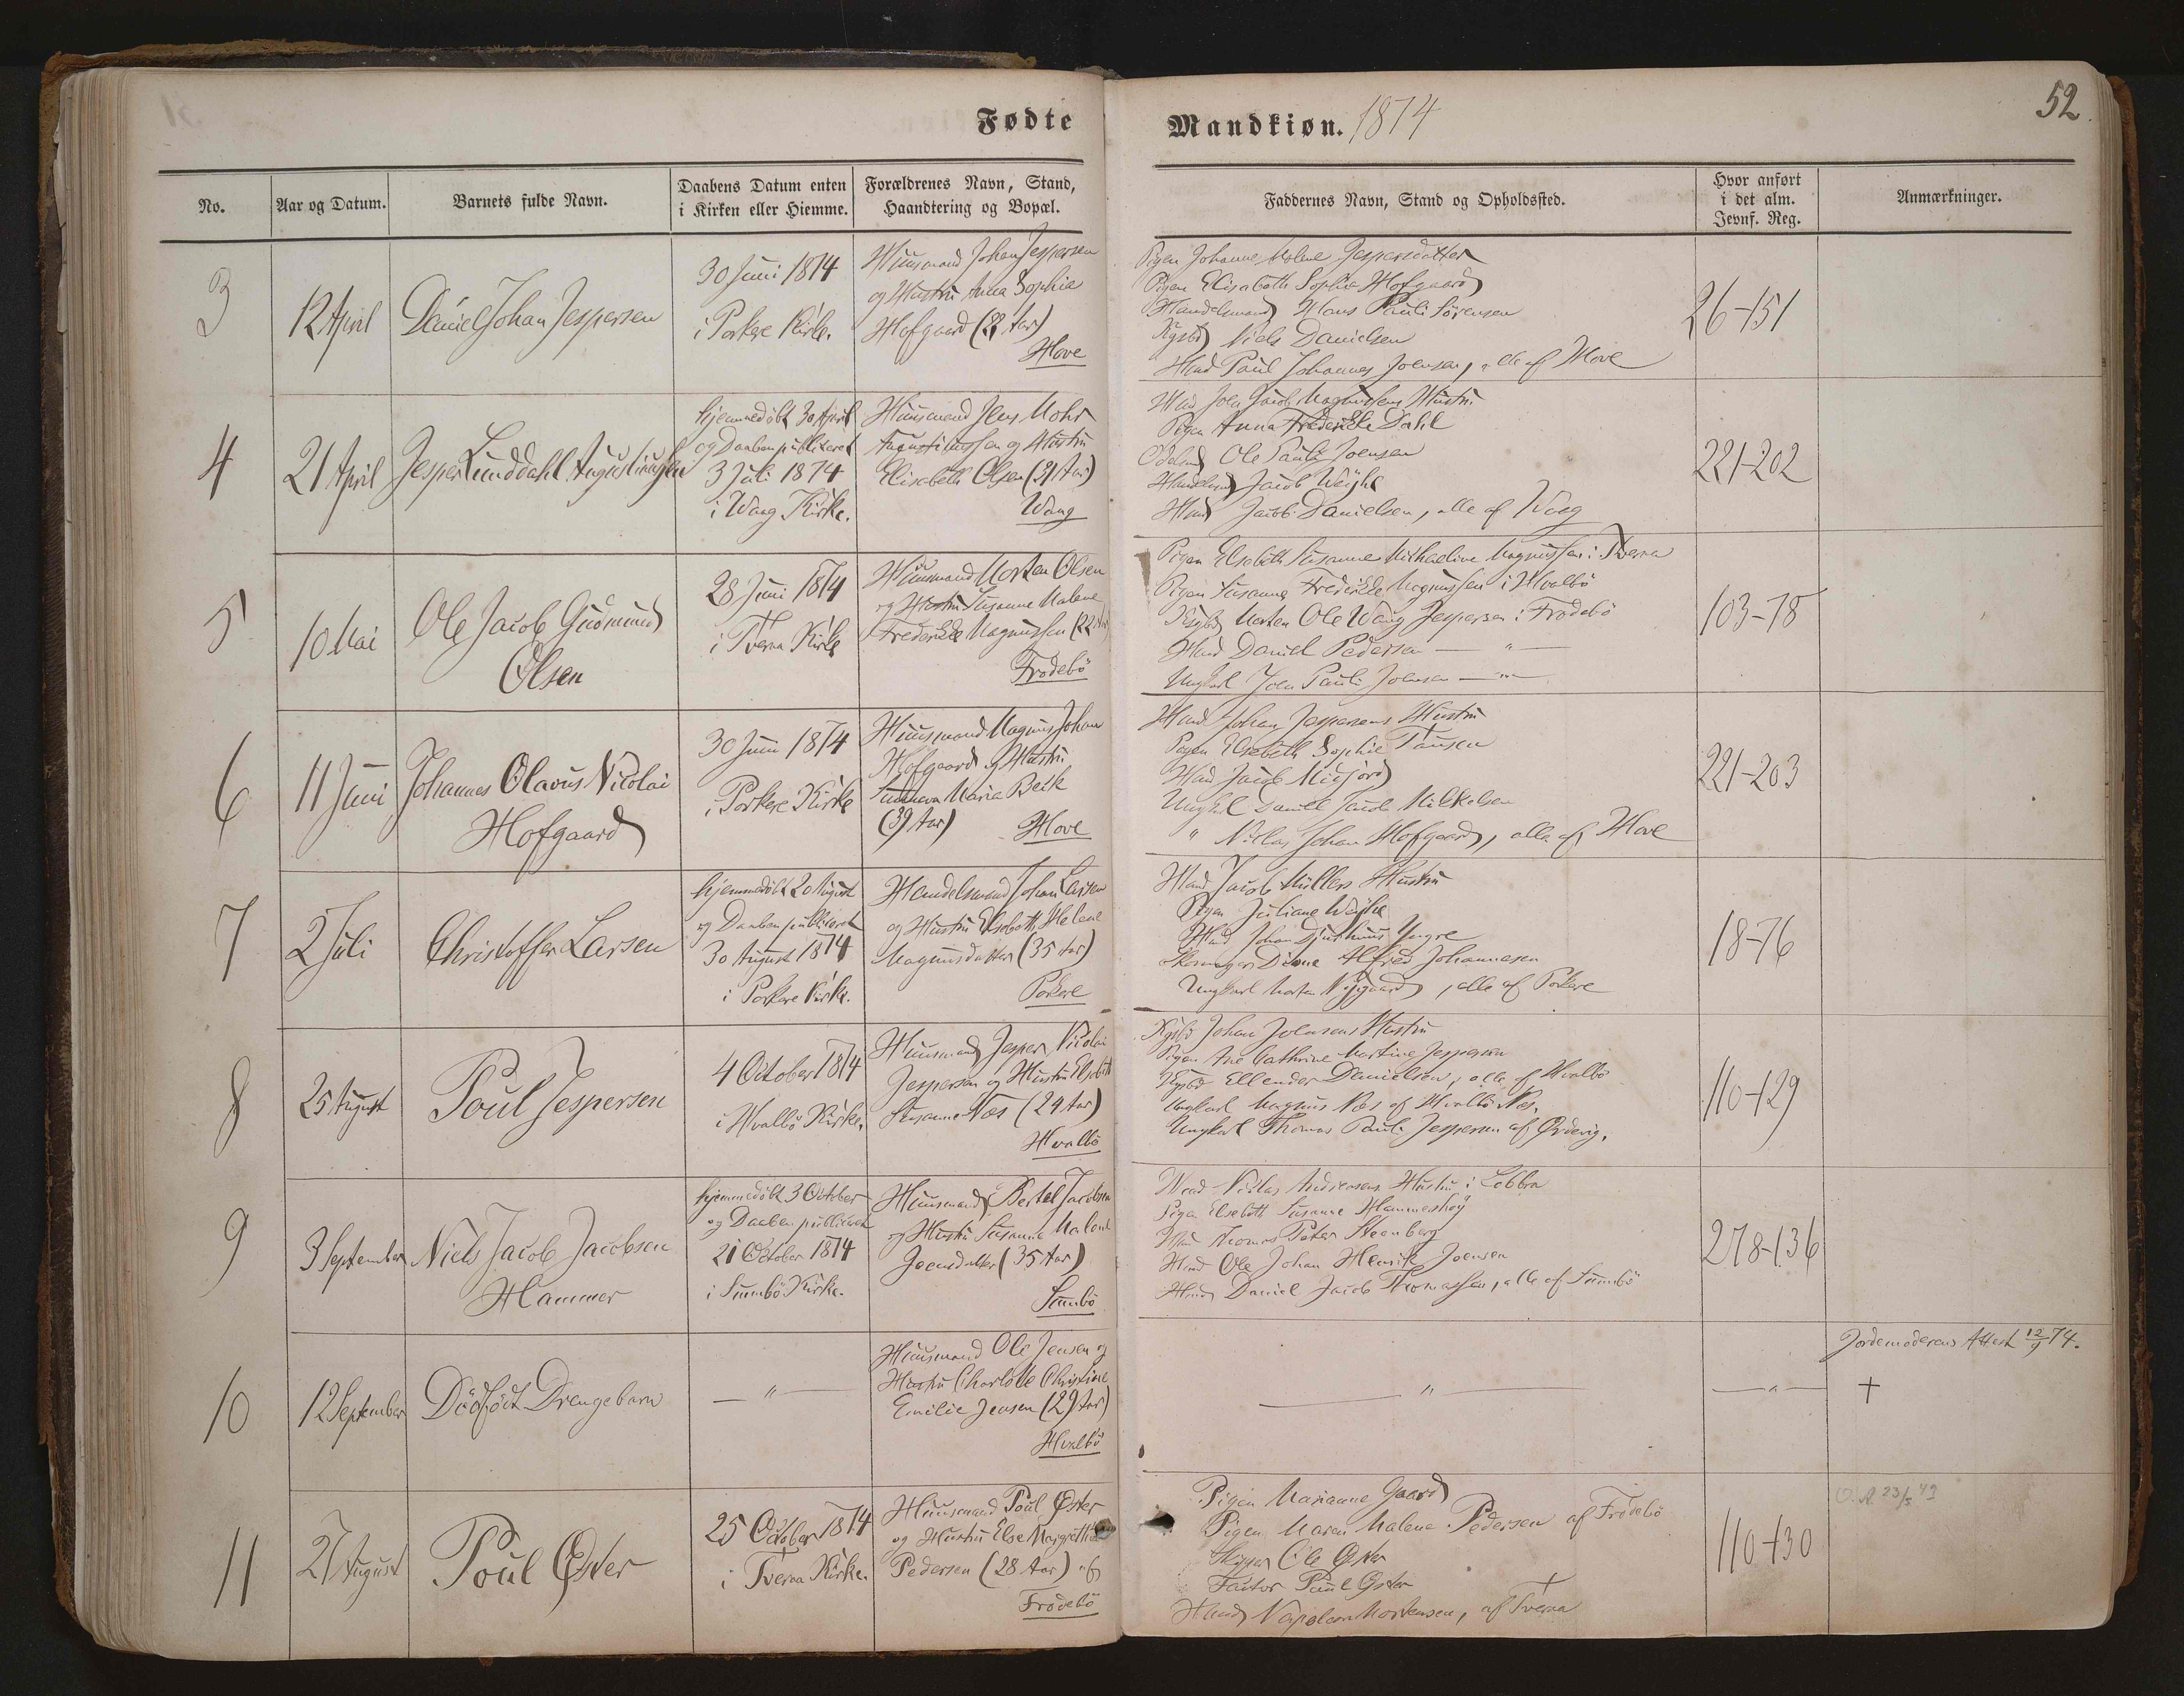 Fødte
Mandkiøn. 1874
52
No.
Aar og Datum.
Barnets fulde Navn.
Daabens Datum enten
i Kirken eller Hiemme.
Forældrenes Navn, Stand,
Haandtering og Bopæl.
Faddernes Navn, Stand og Opholdssted.
Hvor anført
i det alm.
Jevnf. Reg.
Anmærkninger.
3
12 April
Daniel Johan Jespersen
30 Juni 1874
i Porkere Kirke.
Huusmand Johan Jespersen
og Hustru Anna Sophie
Hofgaard (22 Aar)
Hove
Pigen Johanne Malene Jespersdatter
Pigen Elisabeth Sophie Hofgaard
Handelsmand Hans Pauli Sørensen
Kgsbd Niels Danielsen
Hmd Paul Johannes Joensen, alle af Hove
26-151
4
21 April
Jesper Lunddahl Augustinussen
hjemmedöbt 30 April
og Daaben publiceret
3 Juli 1874
i Waag Kirke.
Huusmand Jens Mohr
Augustinussen og Hustru
Elisabeth Olsen (31 Aar)
Waag
Hmd Joen Jacob Magnussens Hustru
Pigen Anna Fredrikke Dahl
Odelsmd Ole Pauli Joensen
Handelsmd Jacob Weyhe
Hmd Jacob Danielsen, alle af Waag
221-202
5
10 Mai
Ole Jacob Gudmund
Olsen
28 Juni 1874
i Tveraa Kirke
Huusmand Morten Olsen
og Hustru Susanne Malene
Frederikke Magnussen (22 Aar)
Frodebö
Pigen Elsebeth Susanne Michaeline Magnussen i Tveraa
Pigen Susanne Fredrikke Magnussen i Hvalbö
Kgsbd Morten Ole Waag Jespersen i Frodebö
Hmd Daniel Pedersen — " —
Ungkarl Joen Pauli Joensen — " —
103-78
6
11 Juni
Johannes Olavus Nicolai
Hofgaard
30 Juni 1874
i Porkere Kirke
Huusmand Magnus Johan
Hofgaard og Hustru
Sunneva Maria Beck
(39 Aar)
Hove
Hmd Johan Jespersens Hustru
Pigen Elsebeth Sophie Tausen
Hmd Jacob Midjord
Ungkarl Daniel Jacob Mikkelsen
" Niclas Johan Hofgaard, alle af Hove
221-203
7
2 Juli
Christoffer Larsen
hjemmedöbt 20 August
og Daaben publiceret
30 August 1874
i Porkere Kirke.
Handelsmand Johan Larsen
og Hustru Elsebeth Helene
Magnusdatter (35 Aar)
Porkere
Hmd Jacob Müllers Hustru
Pigen Juliane Weyhe
Hmd Johan Djurhuus Yngre
Skomager Dione Alfred Johannesen
Ungkarl Morten Nygaard, alle af Porkere
18-76
8
25 August
Poul Jespersen
4 October 1874
i Hvalbö Kirke.
Huusmand Jesper Nicolai
Jespersen og Hustru Elsebeth
Susanne Næs (24 Aar)
Hvalbö
Kgsbd Johan Joensens Hustru
Pigen Ane Cathrine Martine Jespersen
Kgsbd Ellender Danielsen, alle af Hvalbö
Ungkarl Magnus Næs af Hvalbö Næs.
Ungkarl Thomas Pauli Jespersen af Ördevig.
110-129
9
3 September
Niels Jacob Jacobsen
Hammer
hjemmedöbt 3 October
og Daaben publiceret
21 October 1874
i Sumbö Kirke.
Huusmand Bertel Jacobsen
og Hustru Susanne Malene
Joensdatter (35 Aar)
Sumbö
Hmd Niclas Andreasens Hustru i Lobbra
Pigen Elsebeth Susanne Hammershöj
Hmd Thomas Peter Steenberg
Hmd Ole Johan Henrik Joensen
Hmd Daniel Jacob Thomassen, alle af Sumbö
278-136
10
12 September
Dödfödt Drengebarn
— " —
Huusmand Ole Jensen og
Hustru Charlotte Christine
Emilie Jensen (29 Aar)
Hvalbö
— " —
— " —
Jordemoderens Attest 12/9 74.
+
11
27 August
Poul Øster
25 October 1874
i Tveraa Kirke.
Huusmand Poul Øster
og Hustru Else Margrethe
Pedersen (28 Aar) af
Frodebö
Pigen Marianne Gaard
Pigen Maren Malene Pedersen af Frodebö
Skipper Ole Øster
Factor Paul Øster
Hmd Napoleon Mortensen, af Tveraa
110-130
O. A. 23/5 43